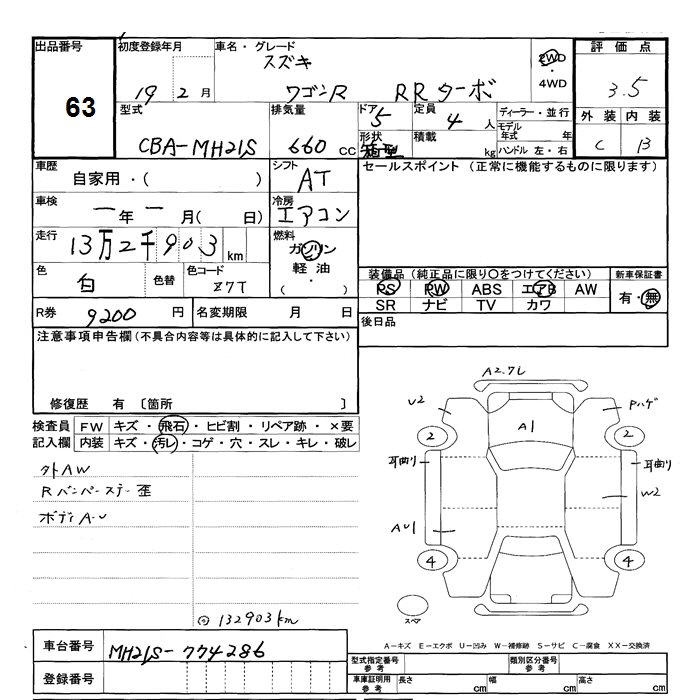 出品番号
63
初度登録年月
19 2 月
車名・グレード
スズキ
ワゴンR RRターボ
2WD
・
4WD
評価点
3.5
外装 内装
C B
型式
CBA-MH21S
排気量
660 cc
ドア
5
形状
箱型
定員
4 人
積載
kg
ディーラー・並行
モデル
年式 年
ハンドル 左・右
車歴
自家用・( )
シフト
AT
セールスポイント (正常に機能するものに限ります)
車検
一年一月( 日)
冷房
エアコン
走行
13万2千903 km
燃料
ガソリン
軽油
・
( )
色
白
色替
色コード
Z7T
装備品 (純正品に限り○をつけてください)
PS PW ABS エアB AW
SR ナビ TV カワ
新車保証書
有・無
R券 9200 円
名変期限 月 日
後日品
注意事項申告欄(不具合内容等は具体的に記入して下さい)
修復歴 有 〔箇所 〕
検査員
記入欄
FW キズ・飛石・ヒビ割・リペア跡・×要
内装 キズ・汚レ・コゲ・穴・スレ・キレ・破レ
外AW
Rバンパーステー歪
ボディA-U
◎132903km
A2.7L
U2
Pハゲ
A1
2
2
耳曲り
耳曲り
W2
AU1
4
4
スペア
A-キズ E-エクボ U-凹み W-補修跡 S-サビ C-腐食 XX-交換済
車台番号
MH21S-774286
登録番号
型式指定番号
参考
類別区分番号
参考
車庫証明用
参考
長さ cm
幅 cm
高さ cm